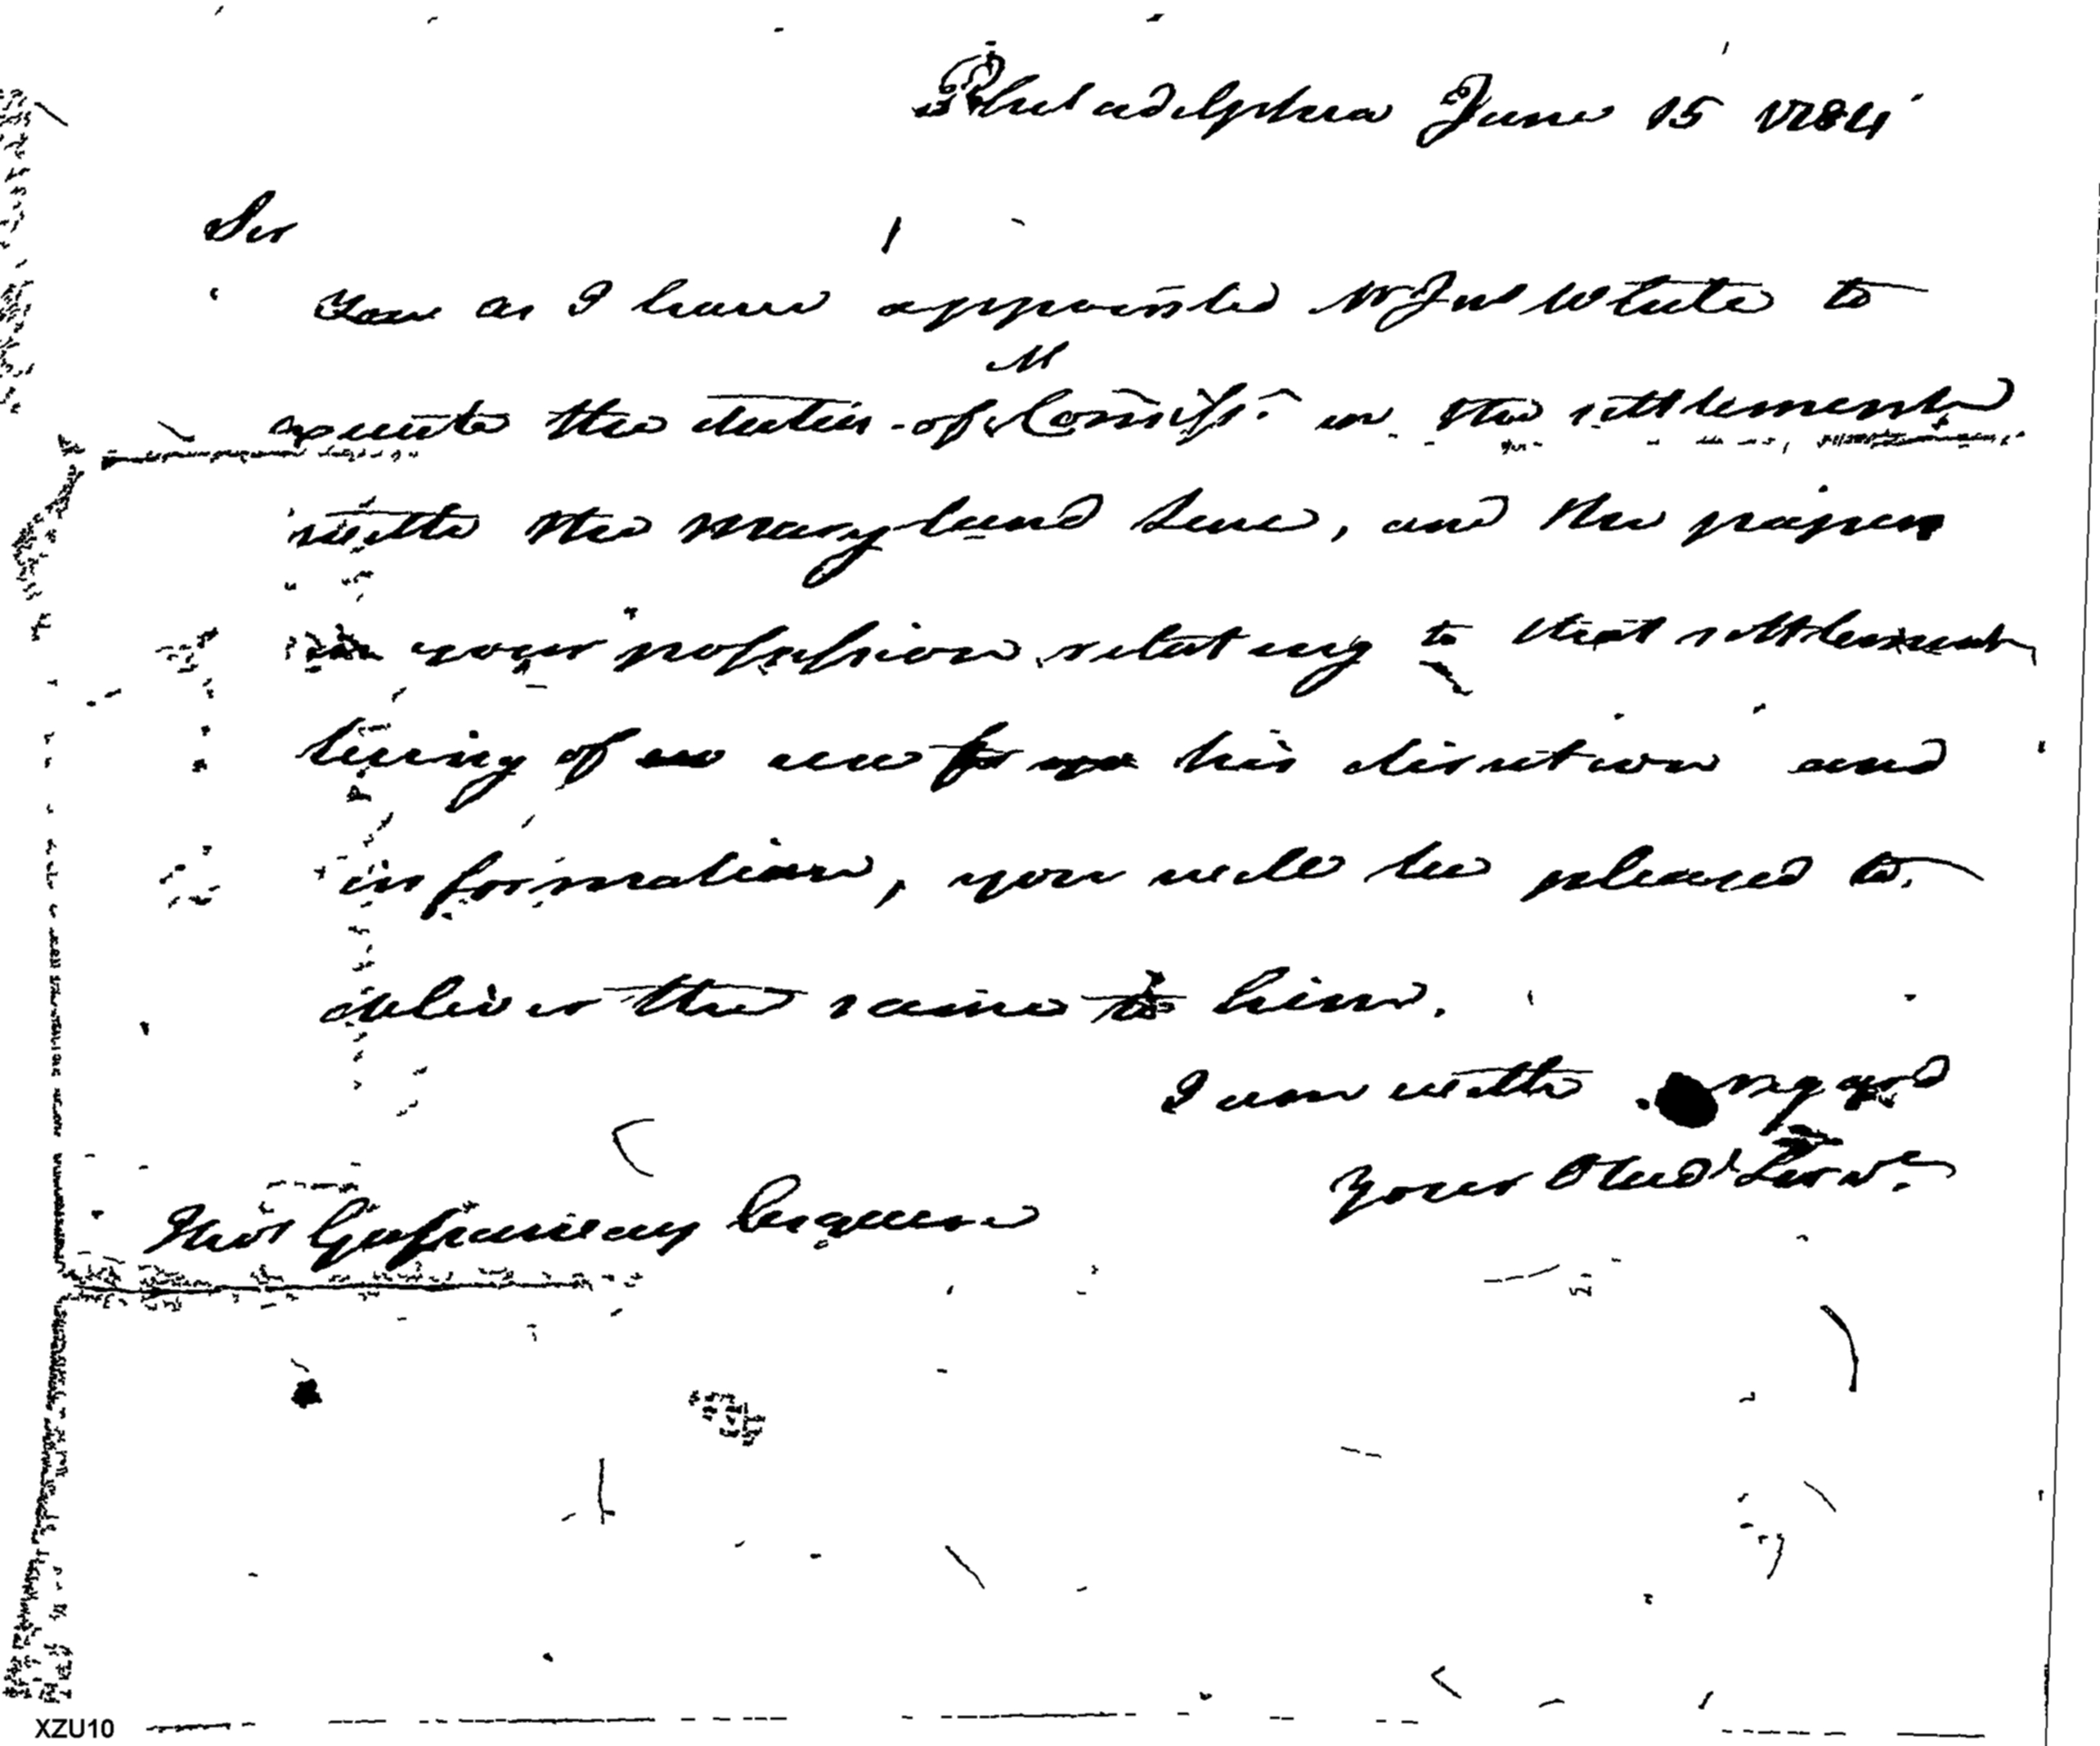 Philadelphia June 15 1784
Sir
as I have appointed Mr Jno White to
execute the duties of a Commissr. in the settlement
with the Maryland line, and the papers
in your possession relating to that settlement
being of use for his direction and
information, you will be pleased to
deliver the same to him.
I am with regard
Your Obed Serv.
Esquire
XZU10